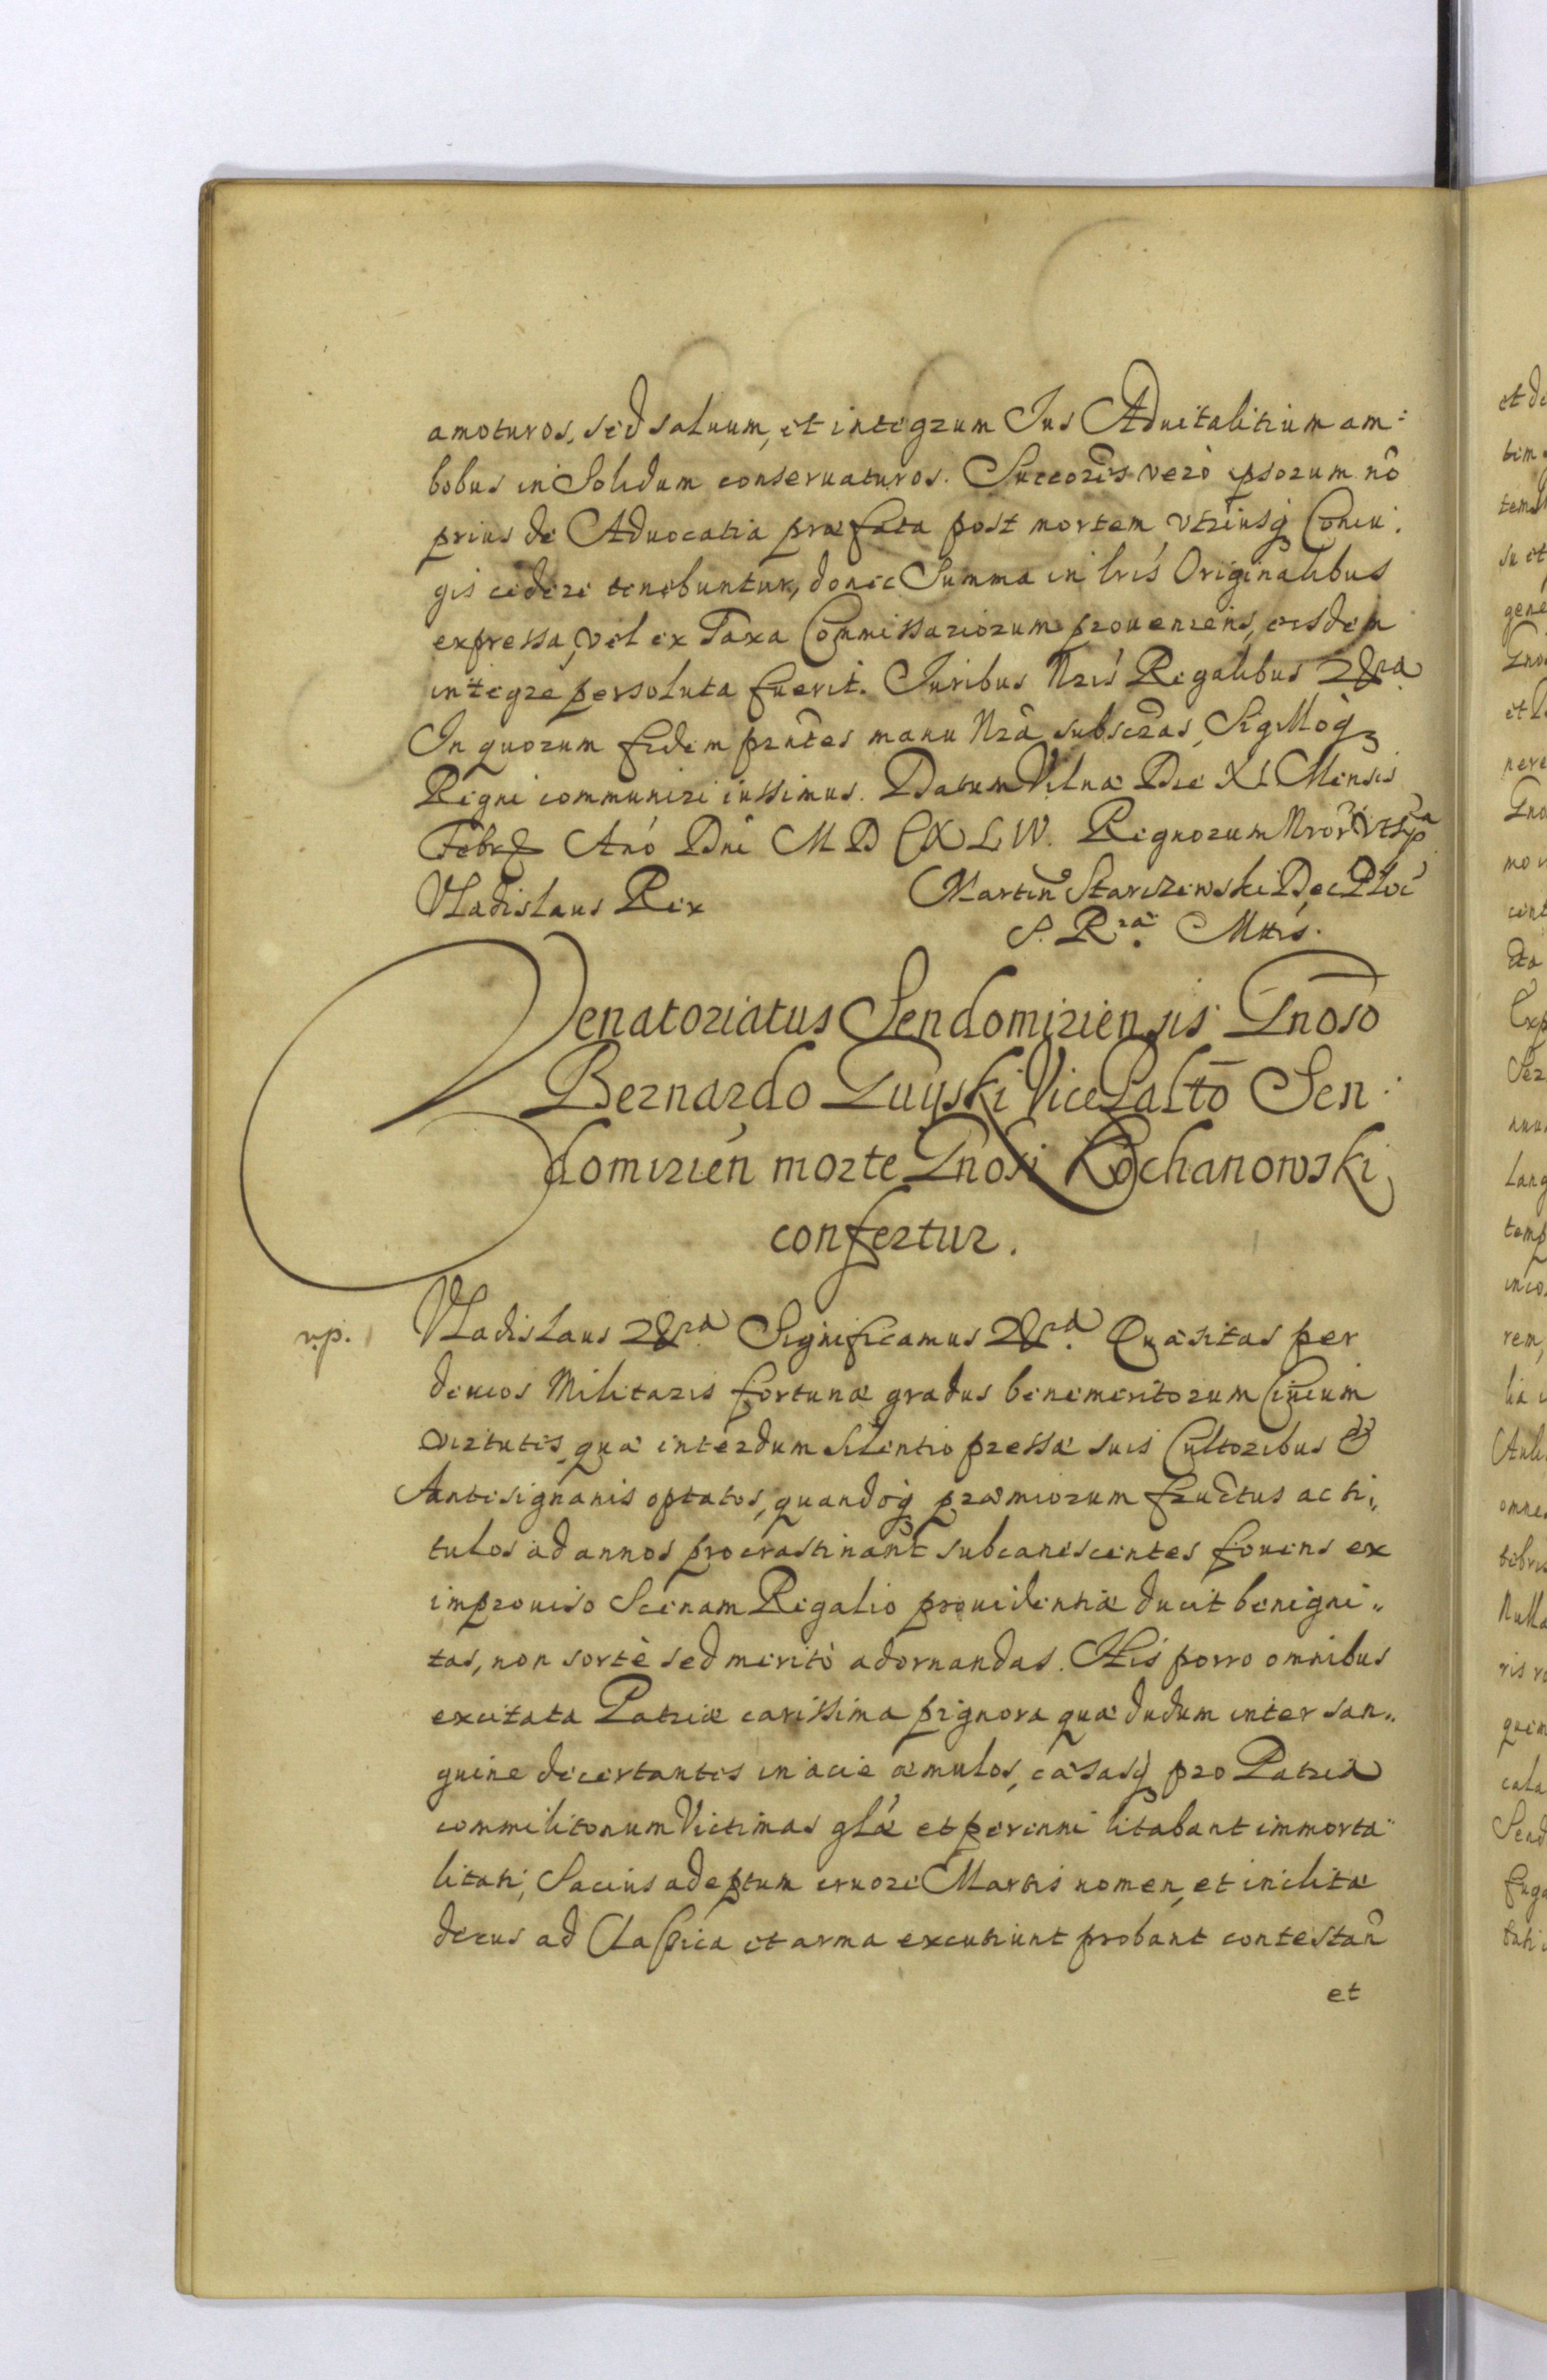 amoturos, sed saluum, et integrum Ius Aduitalitium am:
bobus in Solidum conseruaturos. Succores verò ipsorum nō
prius de Aduocatia præfata post mortem vtriusq Coniu:
gis cedere tenebuntur, donec Summa in lris Originalibus
expressa, vel ex Taxa Commissariorum proueniens, eisdem
integre persoluta fuerit. Iuribus Nris Regalibus
In quorum fidem pntes manu Nrā subscras, Sigilloq
Regni communiri iussimus. Datum Vilnæ Die XI Mensis
Febr Anó Dni M D C X L IV. Regnorum Nror vt sp
Vladislaus Rex Martin Starczewski Dec Ploć
S. Rᵃ Mttis.
Venatoriatus Sendomiriensis Gnoso
Bernardo Guyski Vice Paltō Sen:
domirień morte Gnosi Kochanowski
confertur.
v.p. Vladislaus Significamus Quæsitas per
deuios Militaris fortunæ gradus benemeritorum Ciuium
virtutes, quæ interdum silentio pressæ suis Cultoribus &
Antesignanis optatos, quandoq præmiorum fructus ac ti„
tulos ad annos procrastinant subcanescentes fouens ex
improuiso Scenam Regalio prouidentiæ ducit benigni„
tas, non sortè sed meritò adornandas. His porro omnibus
excitata Patriæ carissima pignora quæ dudum inter san„
guine decertantes in acie æmulos, cæsasq pro Patria
commilitonum Victimas glæ et perenni litabant immorta„
litati, Sacius adeptum cruore Martis nomen, et inclitæ
decus ad Classica et arma excutiunt probant contestan̄
et